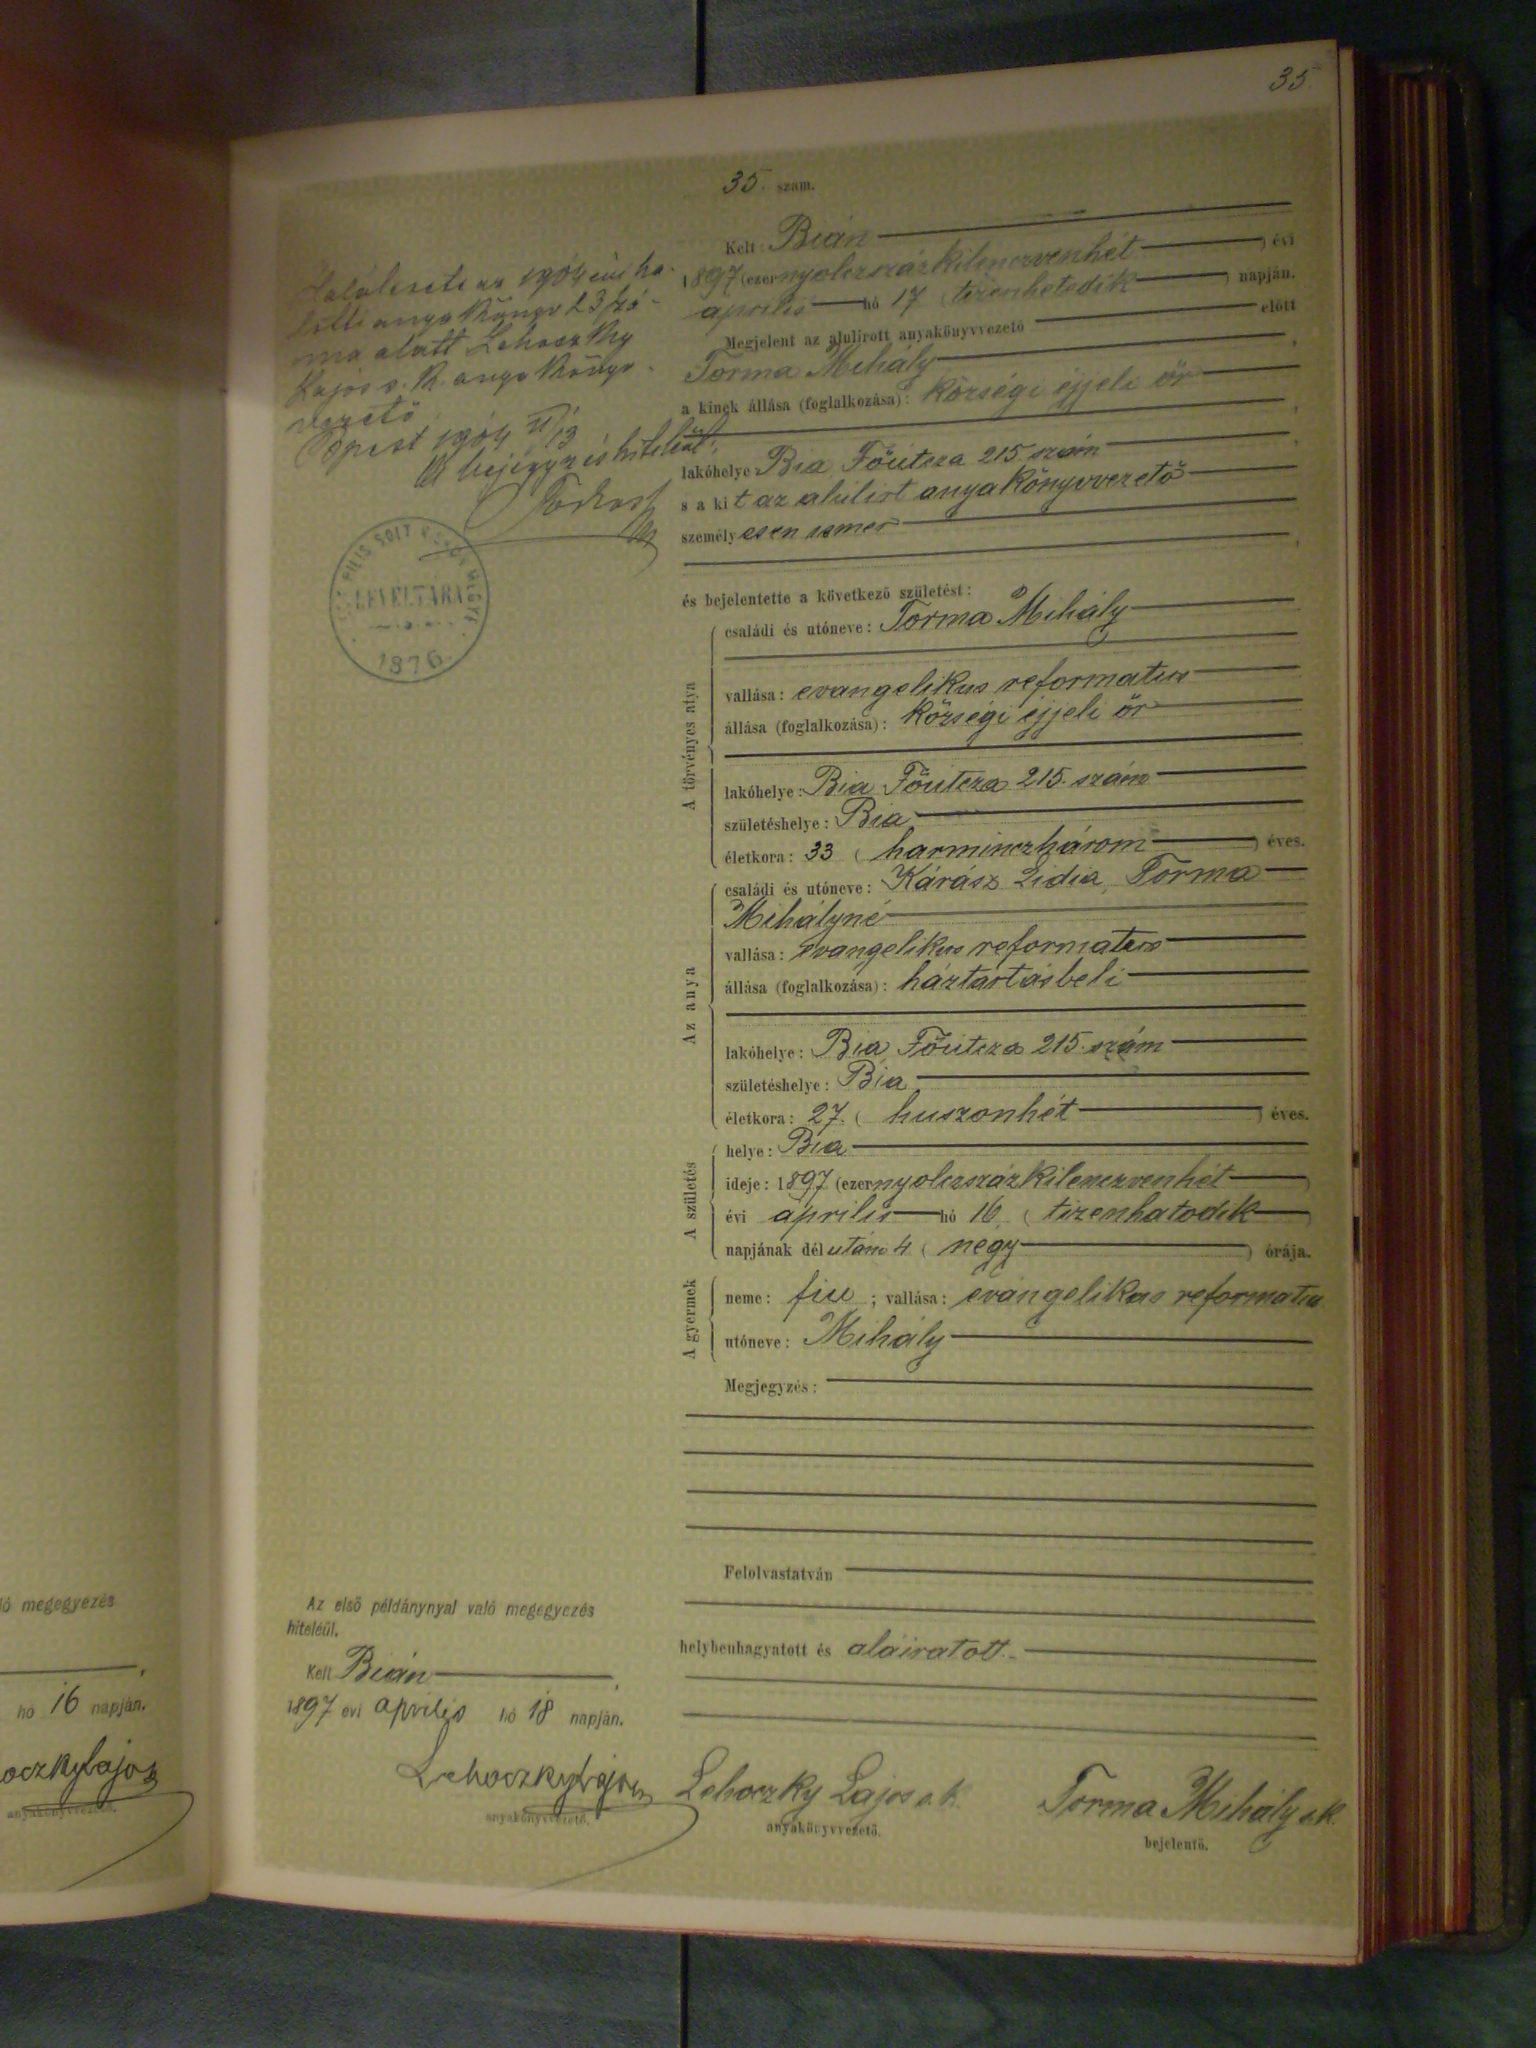 35
35. szám.
Kelt: Bián
1897 (ezernyolczszázkilenczvenhét) évi
április hó 17 (tizenhetedik) napján.
Megjelent az alulirott anyakönyvvezető előtt
Torma Mihály,
a kinek állása (foglalkozása): községi éjjeli őr
lakóhelye Bia Főutcza 215 szám,
s a kit az alulirt anyakönyvvezető
személyesen ismer,
és bejelentette a következő születést:
A törvényes atya
családi és utóneve: Torma Mihály
vallása: evangelikus reformatus
állása (foglalkozása): községi éjjeli őr
lakóhelye: Bia Főutcza 215. szám
születéshelye: Bia
életkora: 33 (harminczhárom) éves.
Az anya
családi és utóneve: Kárász Lidia, Torma
Mihályné
vallása: evangelikus reformatus
állása (foglalkozása): háztartásbeli
lakóhelye: Bia, Főutcza 215. szám
születéshelye: Bia
életkora: 27. (huszonhét) éves.
A születés
helye: Bia
ideje: 1897 (ezernyolczszázkilenczvenhét)
évi április hó 16. (tizenhatodik)
napjának délután 4 (négy) órája.
A gyermek
neme: fiu; vallása: evangelikus reformatus
utóneve: Mihály
Megjegyzés:
Felolvastatván
helybenhagyatott és aláiratott.
Lehoczky Lajos s.k.
anyakönyvvezető.
Torma Mihály s.k.
bejelentő.
Halálesete az 1904 évi ha-
lotti anyakönyv 23 szá-
ma alatt Lehoczky
Lajos s. k. anyakönyv-
vezető
Bpest 1904 II/13
A bejegyzés hiteléül:
PILIS SOLT
LEVÉLTÁRA
1876
Az első példánynyal való megegyezés
hiteléül.
Kelt Bián,
1897 évi április hó 18 napján.
Lehoczky Lajos
anyakönyvvezető.
ló megegyezés
hó 16 napján.
oczky Lajos
anyakönyvvezető.